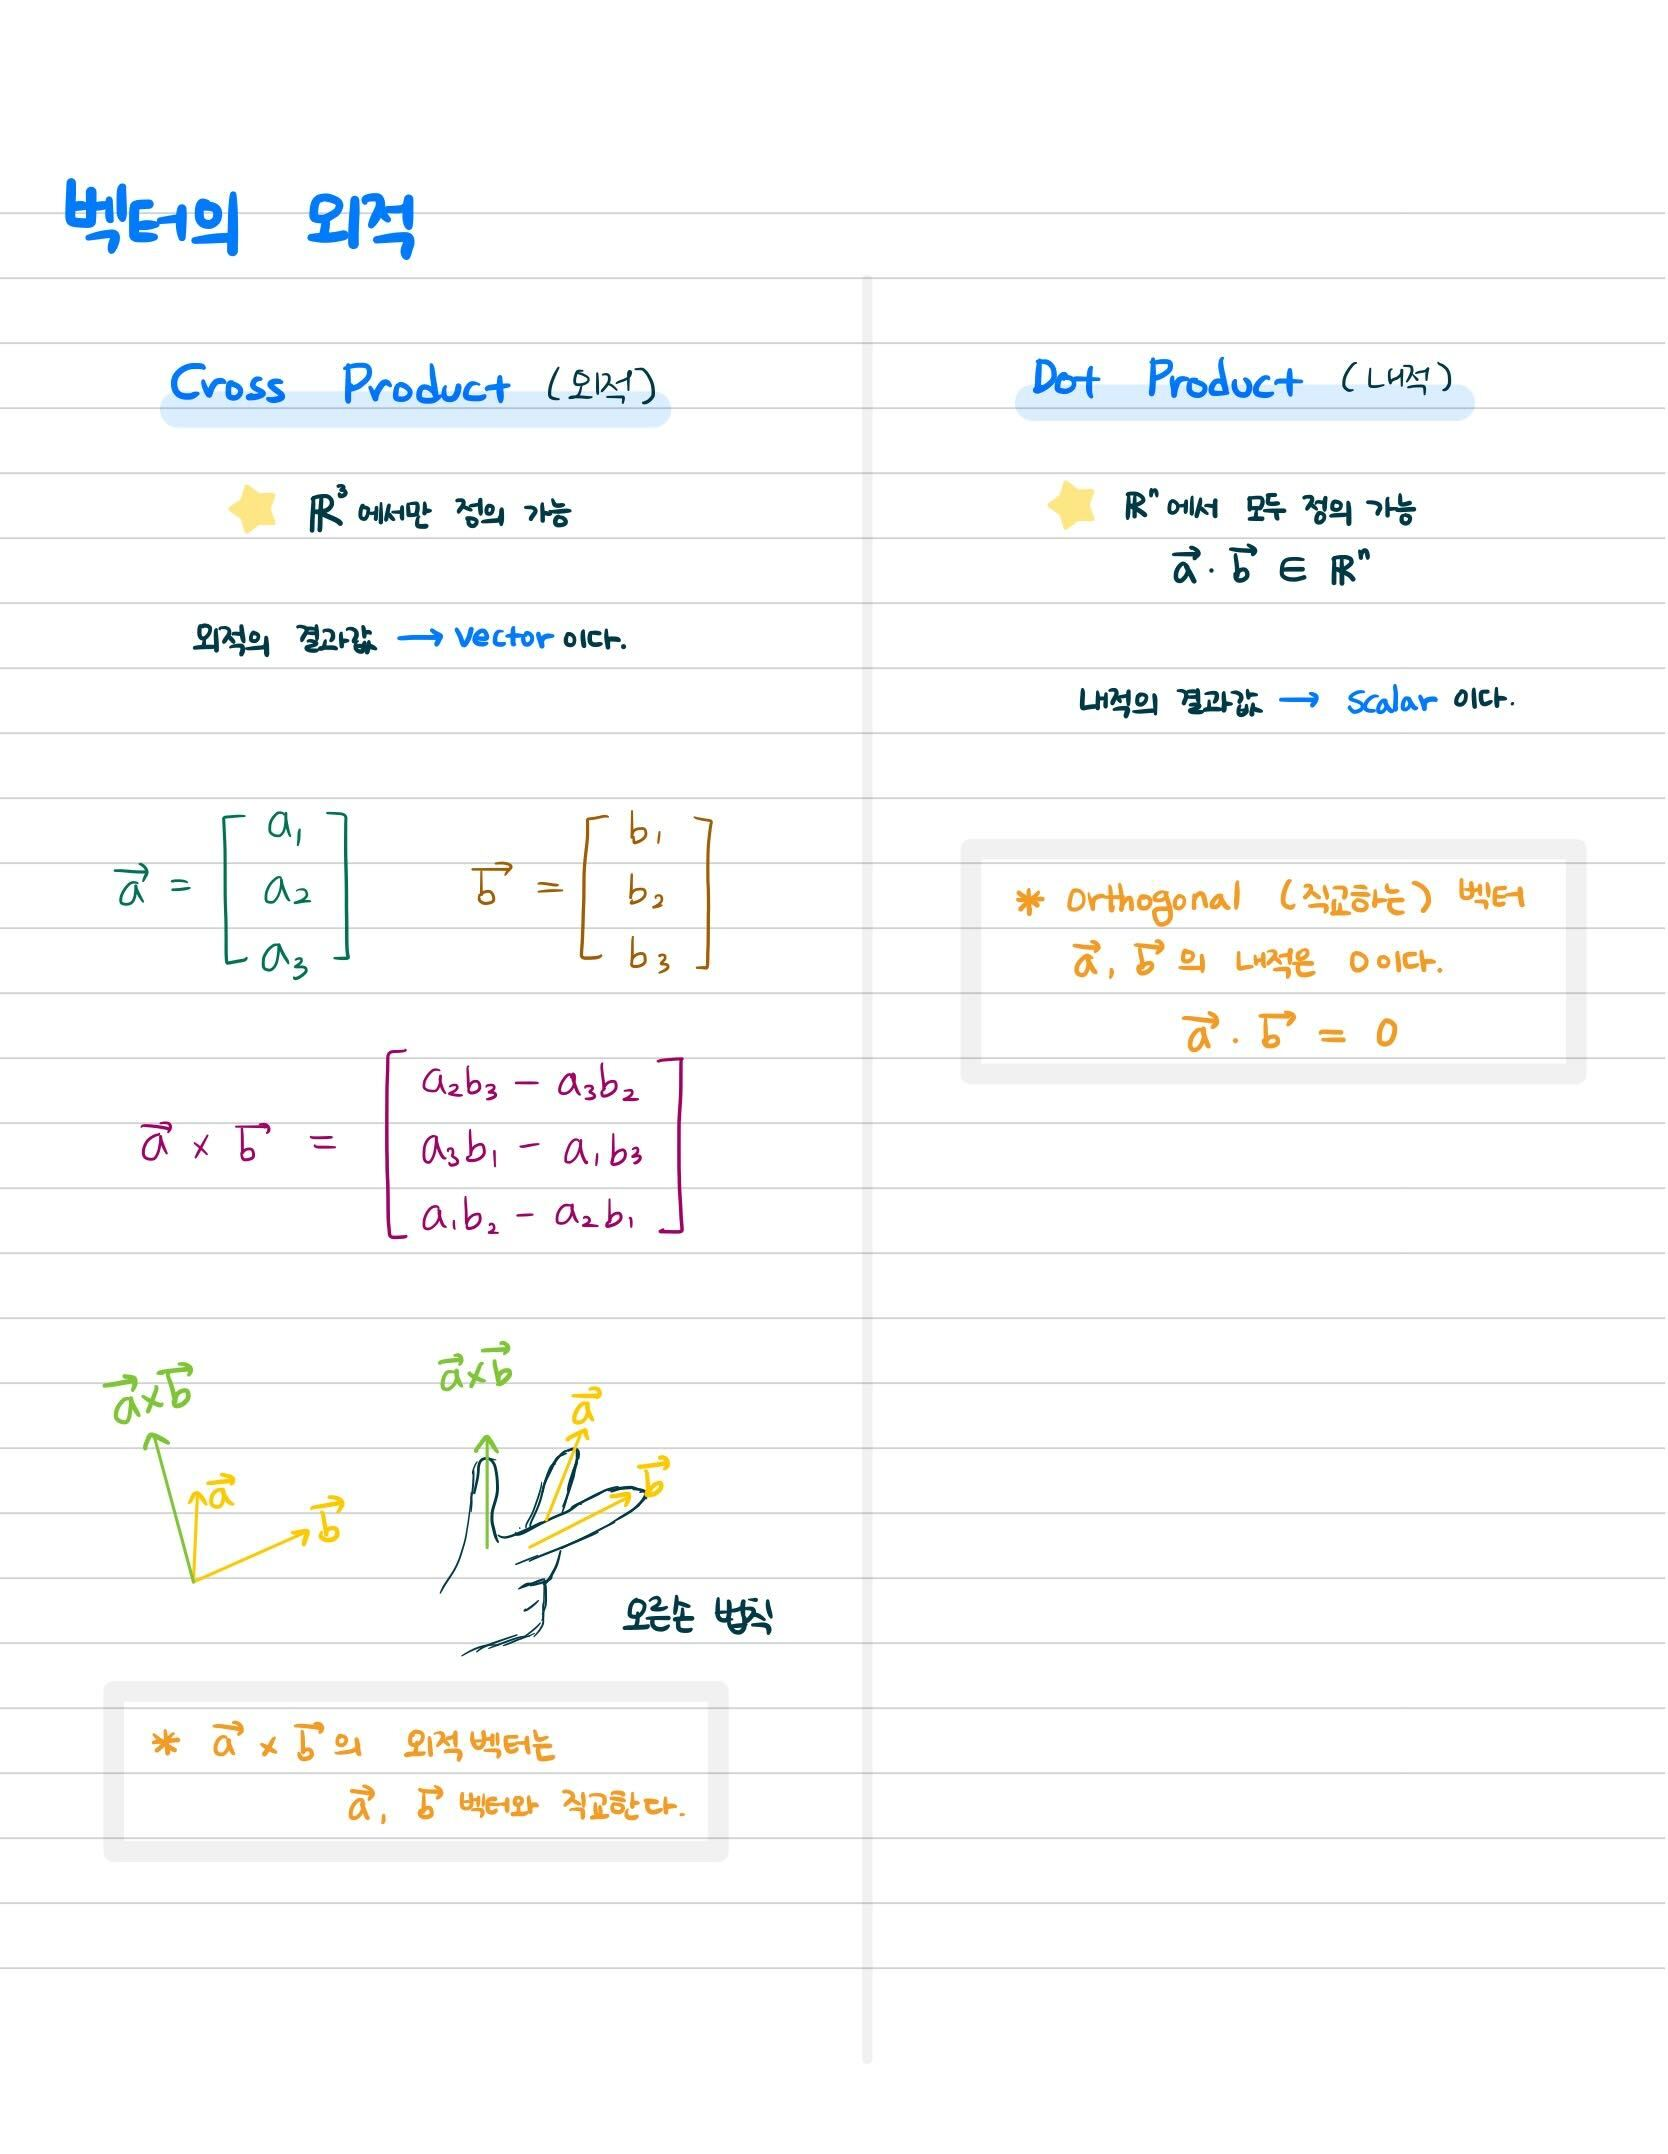 벡터의 외적
Cross Product (외적)
ℝ³에서만 정의 가능
외적의 결과값 → vector 이다.
a⃗ = [ a₁ a₂ a₃ ] b⃗ = [ b₁ b₂ b₃ ]
a⃗ × b⃗ = [ a₂b₃ − a₃b₂
a₃b₁ − a₁b₃
a₁b₂ − a₂b₁ ]
a⃗×b⃗
a⃗
b⃗
a⃗×b⃗
a⃗
b⃗
오른손 법칙
* a⃗ × b⃗ 의 외적벡터는
a⃗, b⃗ 벡터와 직교한다.
Dot Product (내적)
ℝⁿ에서 모두 정의 가능
a⃗ · b⃗ ∈ ℝⁿ
내적의 결과값 → scalar 이다.
* Orthogonal (직교하는) 벡터
a⃗, b⃗ 의 내적은 0이다.
a⃗ · b⃗ = 0